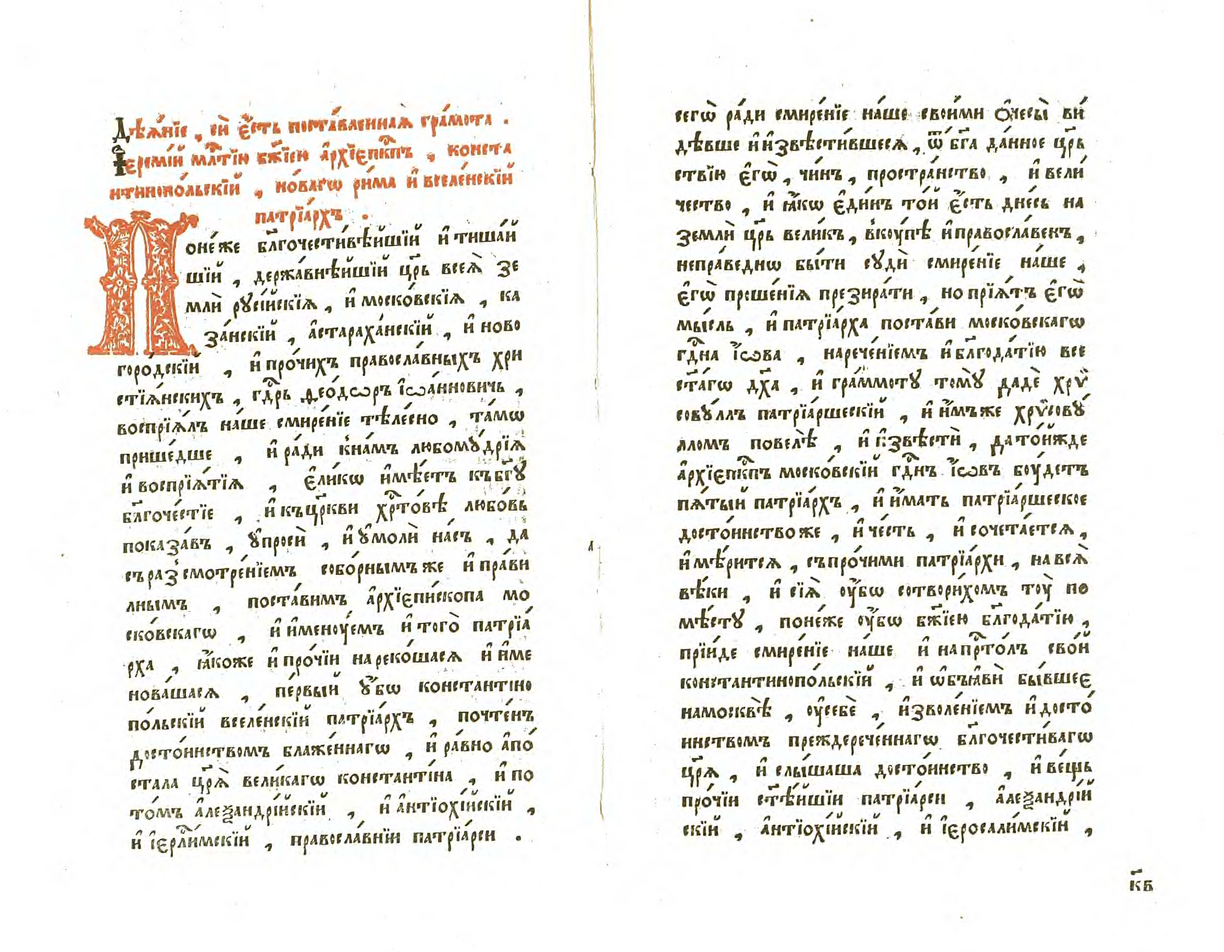 Дѣѧ́нїе , сїѝ є҆́сть поста́вленнаѧ гра́мота .
І҆еремі́й млⷭ҇тїю бж҃їею а҆рхїепⷭ҇кпъ , конста
нтинопо́льскїй , но́вагѡ ри́ма и҆ вселе́нскїй
патрїа́рхъ .
Поне́же блг҃очести́вѣйшїй и҆ тиша́й
шїй , держа́внѣйшїй цр҃ь всеѧ̀ зе
млѝ рꙋсі́йскїѧ , и҆ моско́вскїѧ , ка
за́нскїй , а҆страха́нскїй , и҆ ново
горо́дскїй , и҆ про́чихъ правосла́вныхъ хри
стїѧ́нскихъ , гдⷭ҇рь ѳео́дѡръ і҆ѡа́нновичь ,
воспрїѧ́лъ на́ше смире́нїе тѣле́сно , та́мѡ
прише́дше , и҆ ра́ди к̾на́мъ любомꙋ́дрїѧ
и҆ воспрїѧ́тїѧ , є҆ли́кѡ и҆мѣ́етъ къбг҃ꙋ
блг҃оче́стїе , и҆ къцр҃кви хрⷭ҇то́вѣ любо́вь
показа́въ , ᲂу҆просѝ , и҆ ᲂу҆молѝ на́съ , да
съраз̾смотре́нїемъ собо́рнымъже и҆ пра́ви
лнымъ , поста́вимъ а҆рхїепи́скопа мо
ско́вскагѡ , и҆ и҆менꙋ́емъ и҆ того̀ патрїа́
рха , ꙗ҆́коже и҆ про́чїи нареко́шасѧ и҆ и҆ме
нова́шасѧ , пе́рвый ᲂу҆́бѡ константїно
по́льскїй вселе́нскїй патрїа́рхъ , почте́нъ
досто́инствомъ блаже́ннагѡ , и҆ ра́вно а҆по́
стала цр҃ѧ̀ вели́кагѡ константі́на , и҆ по
то́мъ а҆леѯандрі́йскїй , и҆ а҆нтїохі́йскїй ,
и҆ і҆ерⷭ҇ли́мскїй , правосла́внїи патрїа́рси .
сегѡ̀ ра́ди смире́нїе на́ше свои́ми ѻ҆чесы̀ ви́
дѣвше и҆ и҆звѣсти́вшеесѧ , ѿ бг҃а да́нное цр҃ь
ствїю є҆гѡ̀ , чи́нъ , простра́нство , и҆ вели́
чество , и҆ ꙗ҆́кѡ є҆ди́нъ то́й є҆́сть дне́сь на
землѝ цр҃ь вели́къ , вкꙋ́пѣ и҆ правосла́венъ ,
непра́веднѡ бы́ти сꙋдѝ смире́нїе на́ше ,
є҆гѡ̀ проше́нїѧ презира́ти , но прїѧ́тъ є҆гѡ̀
мы́сль , и҆ патрїа́рха поста́ви моско́вскагѡ
гдⷭ҇на і҆́ѡва , нарече́нїемъ и҆ благода́тїю все
ста́гѡ дх҃а , и҆ гра́ммотꙋ томꙋ̀ дадѐ хрѷ
совꙋ́ллъ патрїа́ршескїй , и҆ и҆́мъже хрѷсовꙋ́
лломъ повелѣ̀ , и҆ и҆звѣстѝ , да то́йжде
а҆рхїепⷭ҇кпъ моско́вскїй гдⷭ҇нъ і҆́ѡвъ бꙋ́детъ
пѧ́тый патрїа́рхъ , и҆ и҆́мать патрїа́ршеское
досто́инствоже , и҆ че́сть , и҆ сочета́етсѧ ,
и҆ мѣ́ритсѧ , съпро́чими патрїа́рхи , навсѧ̀
вѣ́ки , и҆ сїѧ̀ ᲂу҆́бѡ сотвори́хомъ тꙋ̀ по
мѣ́стꙋ , поне́же ᲂу҆́бѡ бж҃їею блг҃ода́тїю ,
прїи́де смире́нїе на́ше и҆ напрⷭ҇то́лъ сво́й
константинопо́льскїй , и҆ ѡ҆бъѧвѝ бы́вшее
намосквѣ̀ , ᲂу҆себѐ , и҆зволе́нїемъ и҆ досто́
инствомъ преждерече́ннагѡ блг҃очести́вагѡ
цр҃ѧ̀ , и҆ слы́шаша досто́инство , и҆ ве́щь
про́чїи ст҃ѣ́йшїи патрїа́рси , а҆леѯандрі́й
скїй , а҆нтїохі́йскїй , и҆ і҆еросали́мскїй ,
к҃в